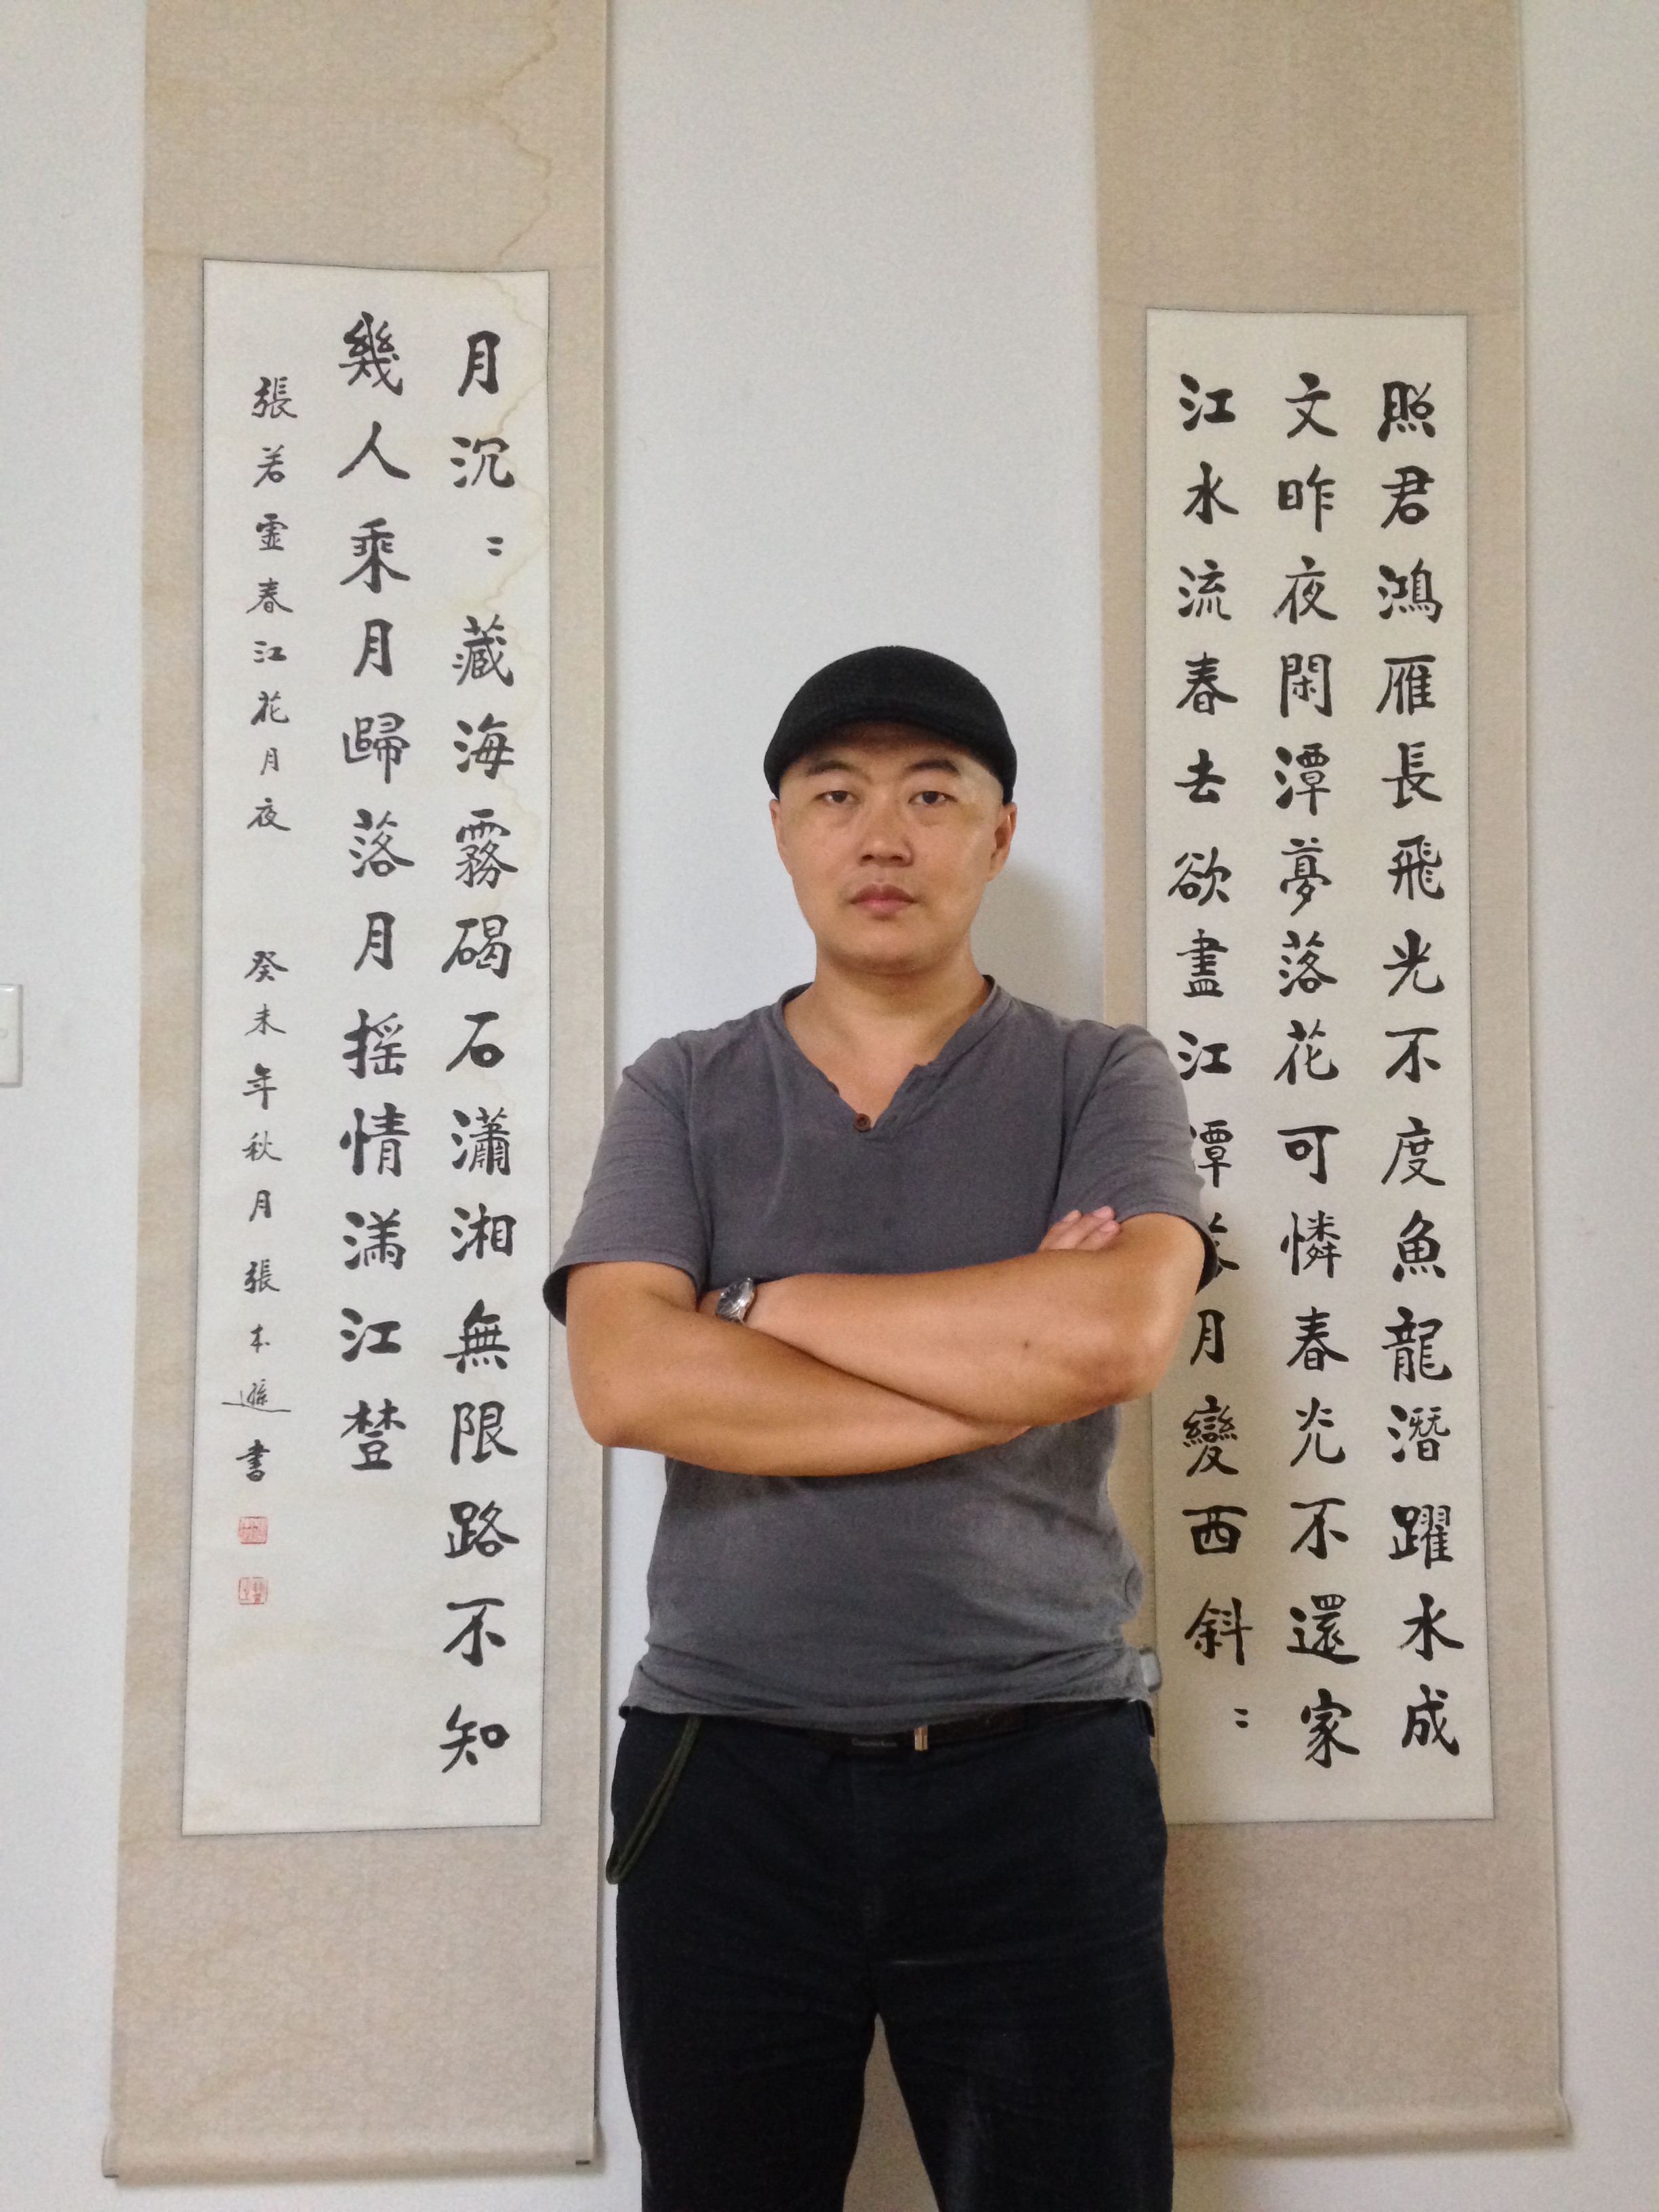 照君鴻雁長飛光不度魚龍潛躍水成
文昨夜閑潭夢落花可憐春光不還家
江水流春去欲盡江潭落月變西斜〻
月沉〻藏海霧碣石瀟湘無限路不知
幾人乘月歸落月摇情滿江樹
張若虛春江花月夜 癸未年秋月張本遜書